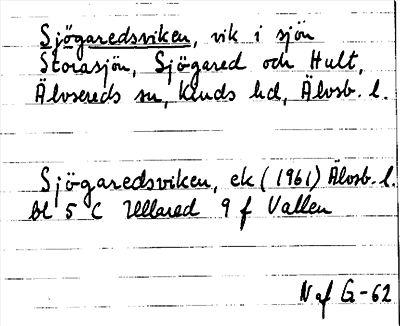 Sjögaredsviken, vik i sjön
Storasjön, Sjögared och Hult,
Älvsereds sn, Kinds hd, Älvsb. l.
Sjögaredsviken, ek (1961) Älvsb. l.
bl 5 C Ullared 9 f Vallen
N af G-62